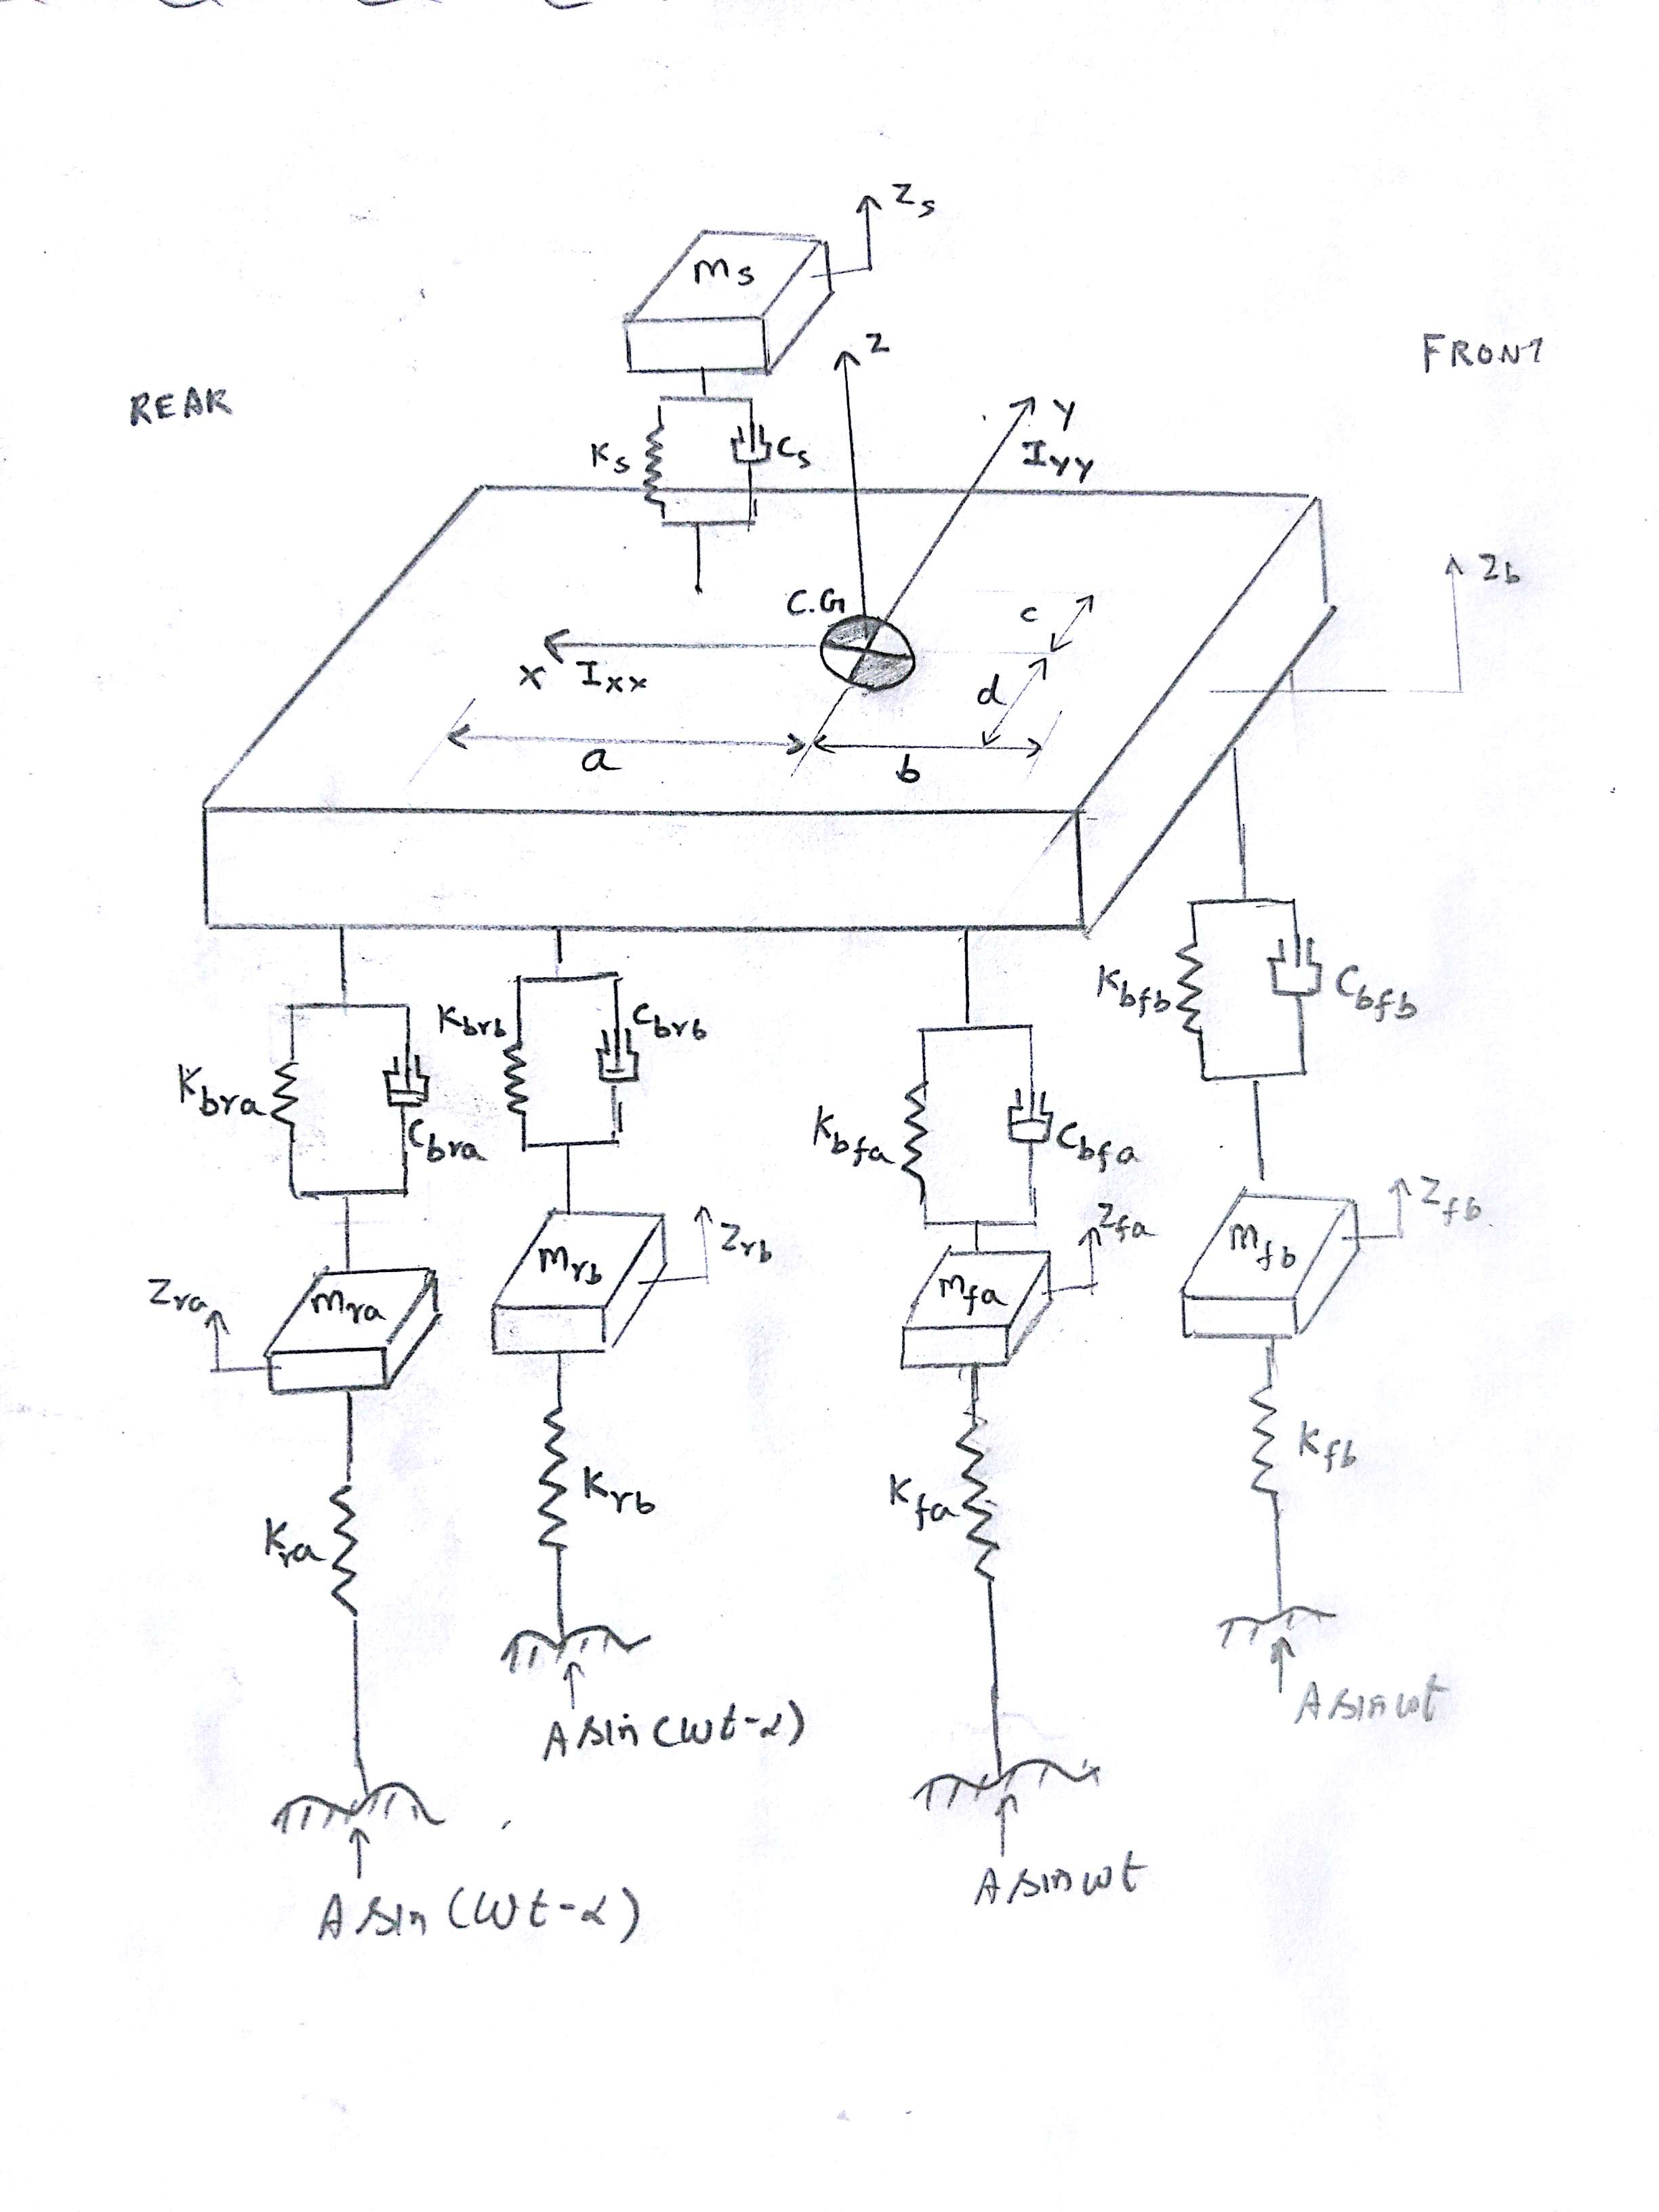 Zs
ms
Z
FRONT
REAR
Y
Ks
Cs
IYY
Zb
C.G
c
X
Ixx
d
a
b
Kbrb
Cbrb
Kbfb
Cbfb
Kbra
Cbra
Kbfa
Cbfa
Zrb
Zfa
Zfb
mrb
mfb
Zra
mra
mfa
Krb
Kfa
Kfb
Kra
A sin(ωt-α)
A sin ωt
A sin ωt
A sin (ωt-α)